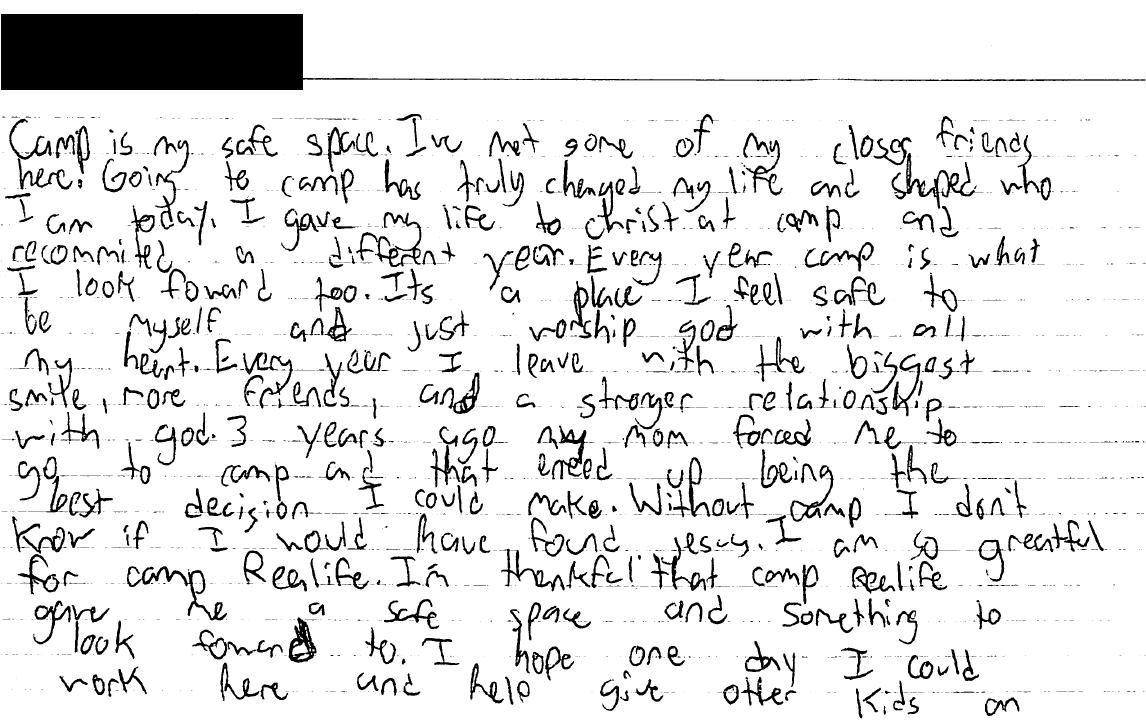 Camp is my safe space. I've met some of my closes friends
here! Going to camp has truly changed my life and shaped who
I am today. I gave my life to christ at camp and
recommited a different year. Every year camp is what
I look foward too. Its a place I feel safe to
be myself and just worship god with all
my heart. Every year I leave with the biggest
smile, more friends, and a stronger relationship
with god. 3 years ago my mom forced me to
go to camp and that ended up being the
best decision I could make. Without camp I don't
know if I would have found jesus. I am so greatful
for camp Realife. I'm thenkful that camp Realife
gave me a safe space and something to
look foward to. I hope one day I could
work here and help give other kids an